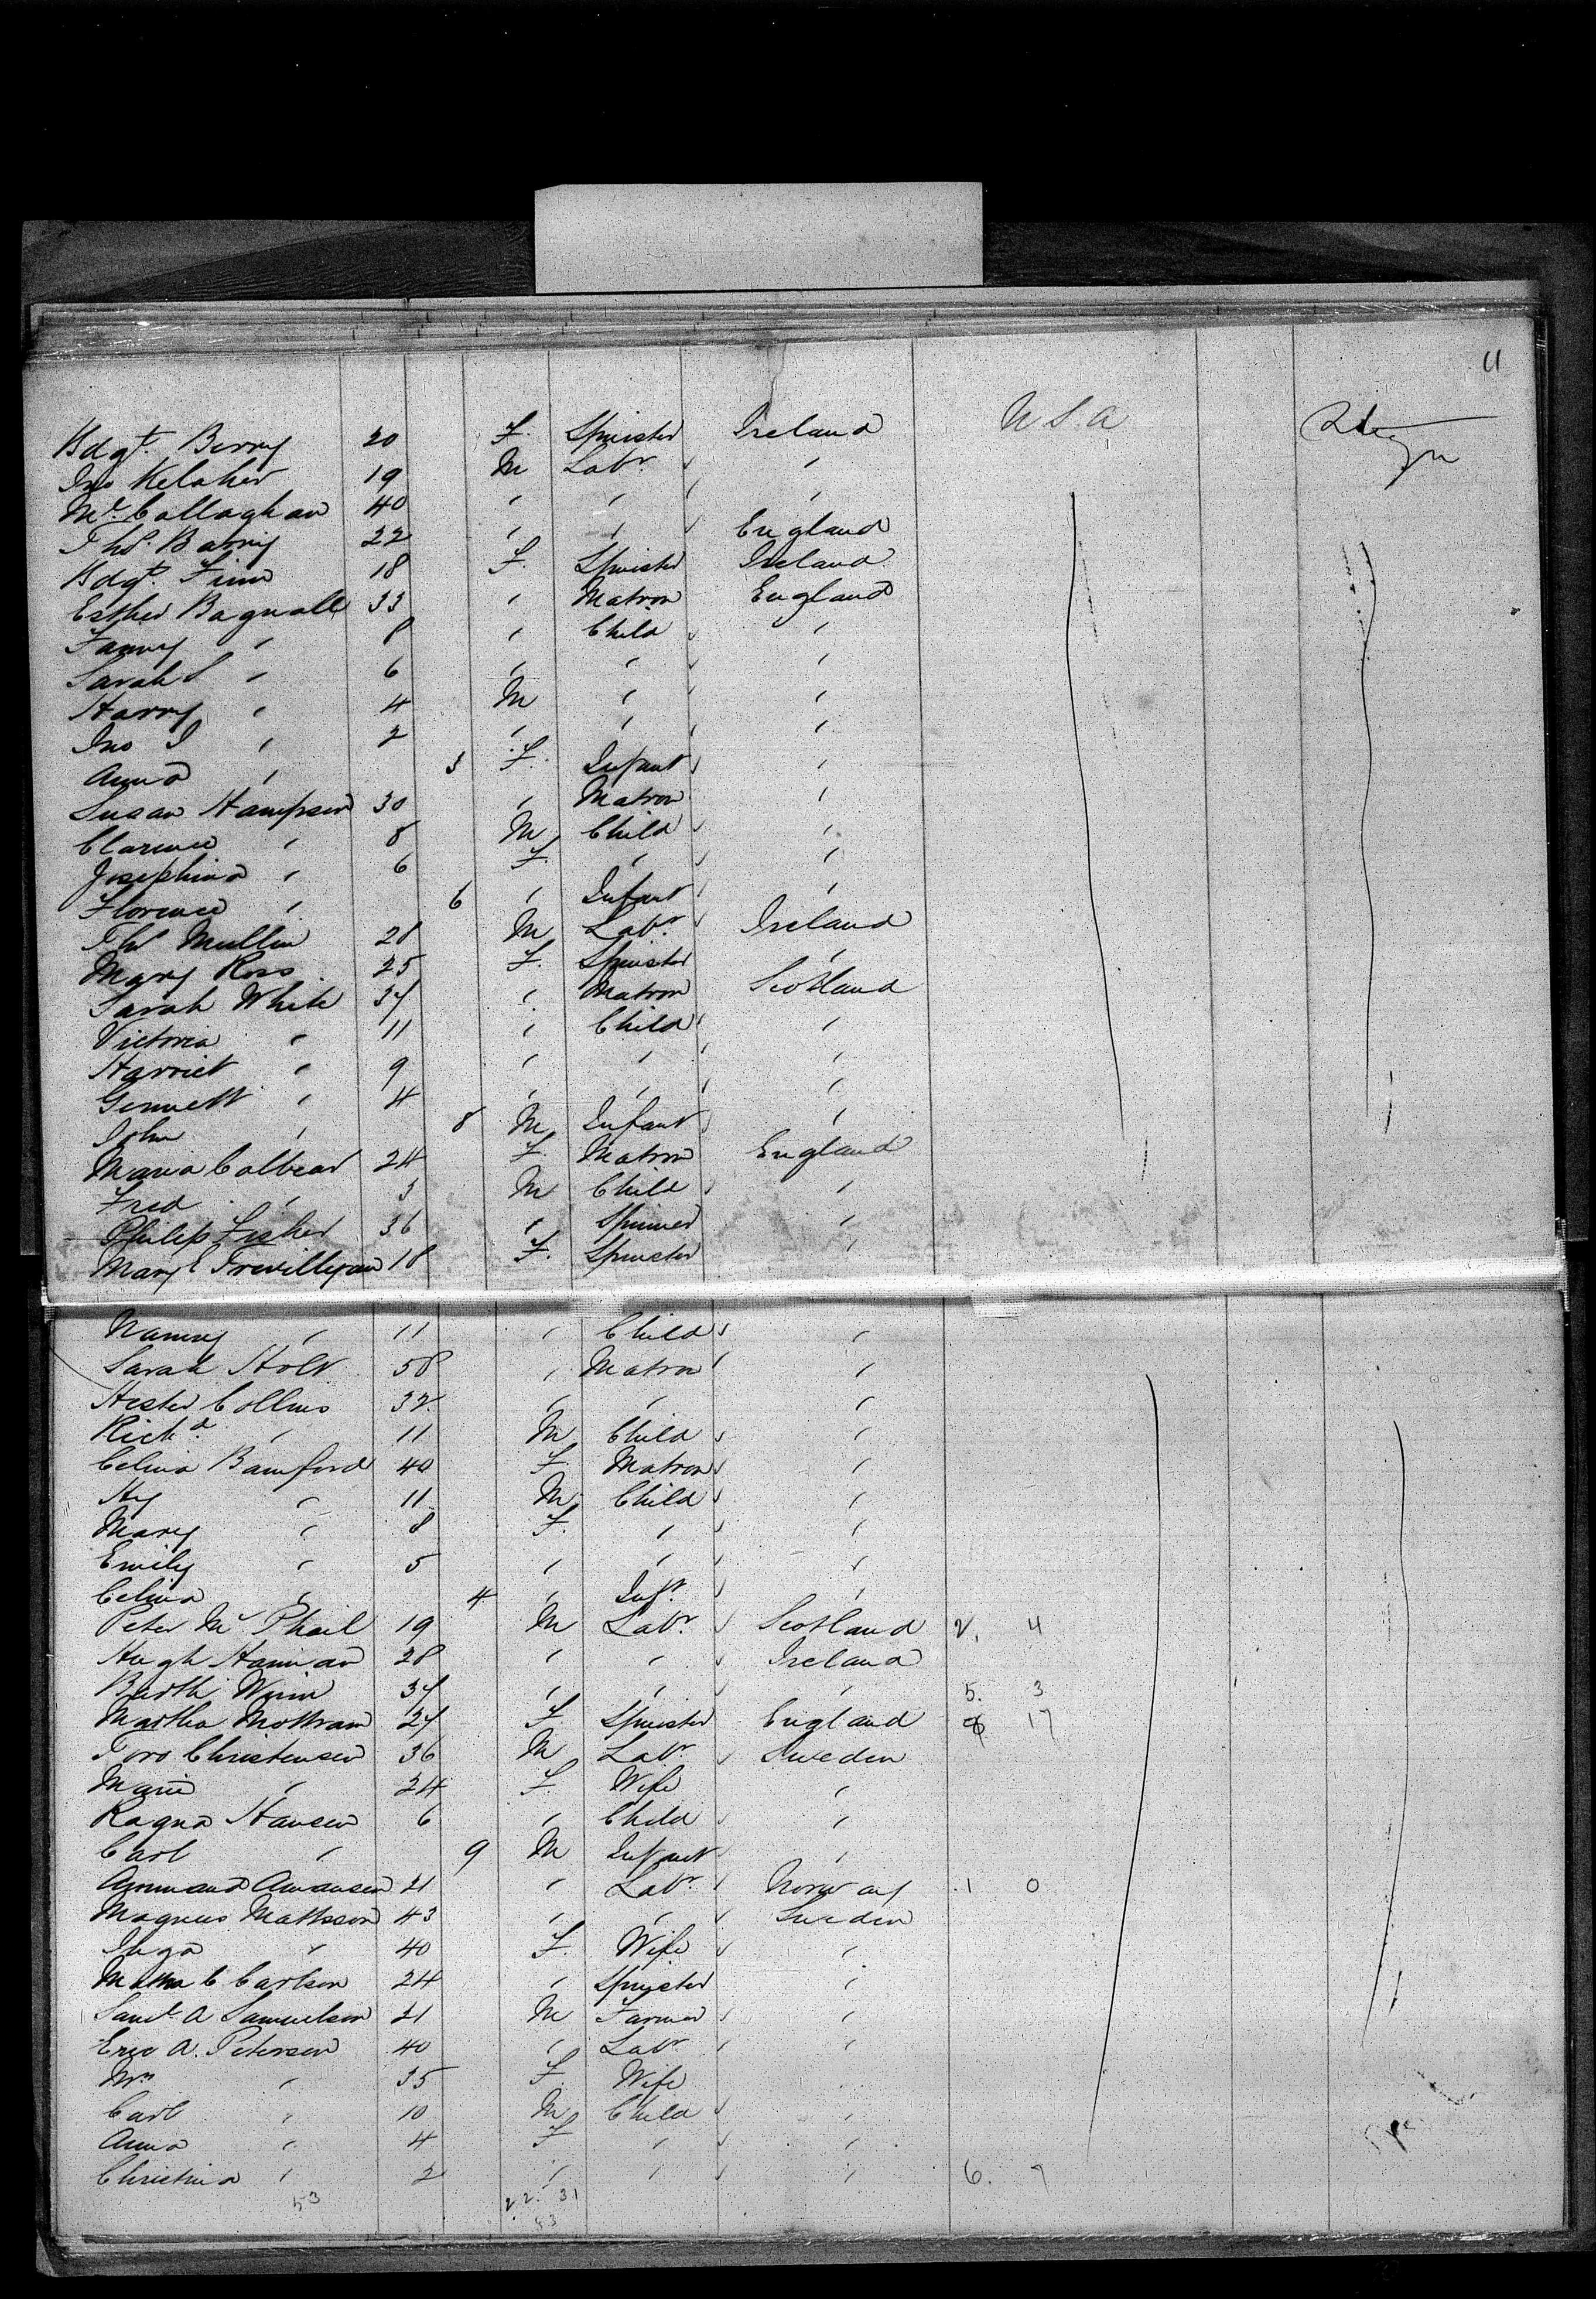 11
Bdgt. Berry 20 F. Spinster Ireland U S A
Jno Kelaher 19 M Labr. "
Ml. Callaghan 40 " " "
Ths. Barry 22 " " England
Bdgt. Finn 18 F. Spinster Ireland
Esther Bagnall 33 " Matron England
Fanny " 8 " Child "
Sarah S " 6 " " "
Harry " 4 M " "
Jno J " 2 " " "
Anna " 3 F. Infant "
Susan Hampson 30 " Matron "
Clarence " 8 M Child "
Josephina " 6 F. " "
Florence " 6 " Infant "
Ths Mullin 28 M Labr. Ireland
Mary Ross 25 F. Spinster "
Sarah White 34 " Matron Scotland
Victoria " 11 " Child "
Harriet " 9 " " "
Gennett " 4 " " "
John " 8 M Infant "
Maria Colbear 24 F. Matron England
Fred " 3 M Child "
Philip Fisher 36 " Spinner "
Mary E Trevillyan 18 F. Spinster "
Nanny " 11 " Child "
Sarah Holt 58 " Matron "
Hester Collins 32 " " "
Richd. " 11 M Child "
Celina Bamford 40 F. Matron "
Hy " 11 M Child "
Mary " 8 F. " "
Emily " 5 " " "
Celina " 4 " Inft. "
Peter McPhail 19 M Labr. Scotland 2. 4
Hugh Hannan 28 " " Ireland
Barth. Winn 34 " " " 5. 3
Martha Mottram 24 F. Spinster England 17
Toro Christensen 36 M Labr. Sweden
Marie " 24 F. Wife "
Ragna Hansen 6 " Child "
Carl " 9 M Infant "
Ammand Amansen 21 " Labr. Norway 1 0
Magnus Mattsson 43 " " Sweden
Inga " 40 F. Wife "
Matha C Carlson 24 " Spinster "
Saml. A Samuelson 21 M Farmer "
Eric A. Peterson 40 " Labr "
Mrs " 35 F. Wife
Carl " 10 M Child "
Anna " 4 F " "
Christina " 2 " " " 6. 7
53 22. 31
53